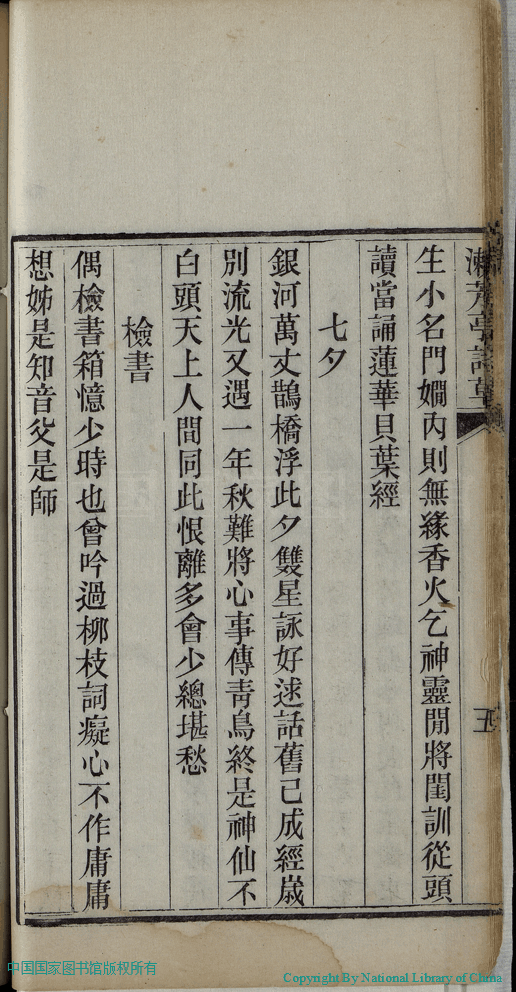 生小名門嫺內則無緣香火乞神靈閒將閨訓從頭
讀當誦蓮華貝葉經
七夕
銀河萬丈鵲橋浮此夕雙星詠好逑話舊已成經歲
別流光又遇一年秋難將心事傳靑鳥終是神仙不
白頭天上人間同此恨離多會少總堪愁
檢書
偶檢書箱憶少時也曾吟過柳枝詞癡心不作庸庸
想姊是知音父是師
五
中国国家图书馆版权所有
Copyright By National Library of China